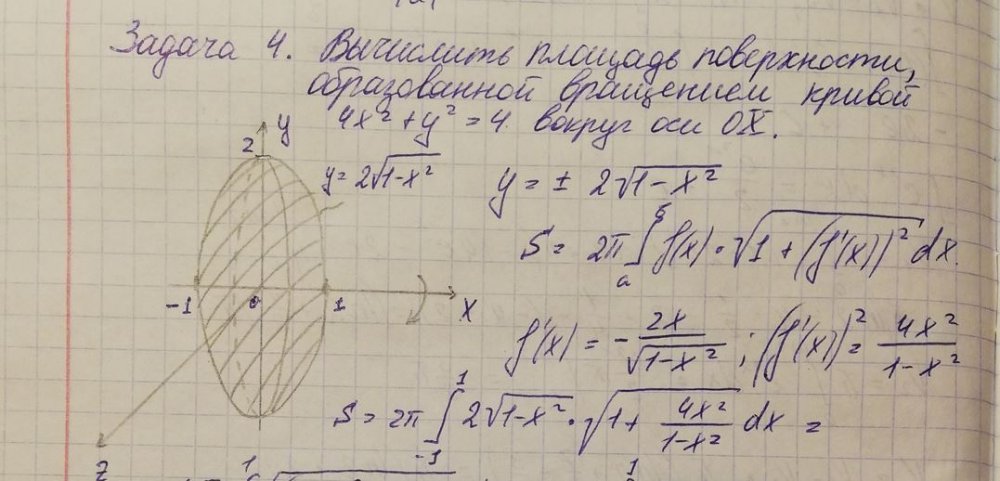 Задача 4. Вычислить площадь поверхности,
образованной вращением кривой
4x² + y² = 4. вокруг оси OX.
2 y
y = 2√(1-x²) y = ± 2√(1-x²)
S = 2π ∫ₐᵇ f(x) · √(1 + (f'(x))²) dx.
-1 0 1 x
f'(x) = - 2x/√(1-x²) ; (f'(x))² = 4x²/(1-x²)
S = 2π ∫₋₁¹ 2√(1-x²) · √(1 + 4x²/(1-x²)) dx =
z